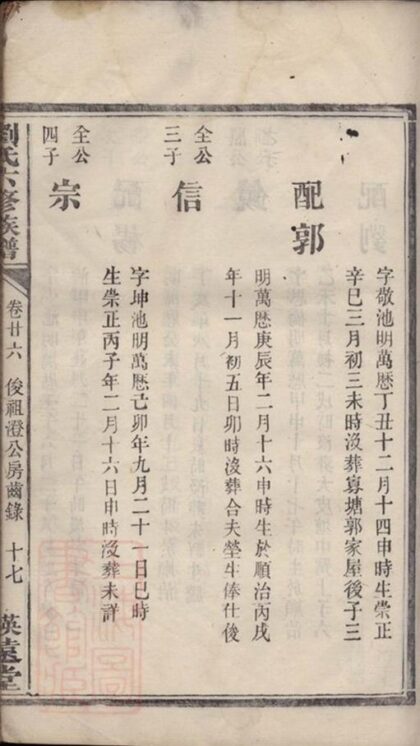 字敬池明萬歷丁丑十二月十四申時生崇正
辛巳三月初三未時沒葬𪧘塘郭家屋後子三
配郭
明萬歷庚辰年二月十六申時生於順治丙戌
年十一月初五日卯時沒葬合夫塋生俸仕俊
全公
三子
信
字坤池明萬歷己卯年九月二十一日巳時
生崇正丙子年二月十六日申時沒葬未詳
全公
四子
宗
劉氏六修族譜
卷廿六
俊祖澄公房齒錄
十七
瑛遠堂